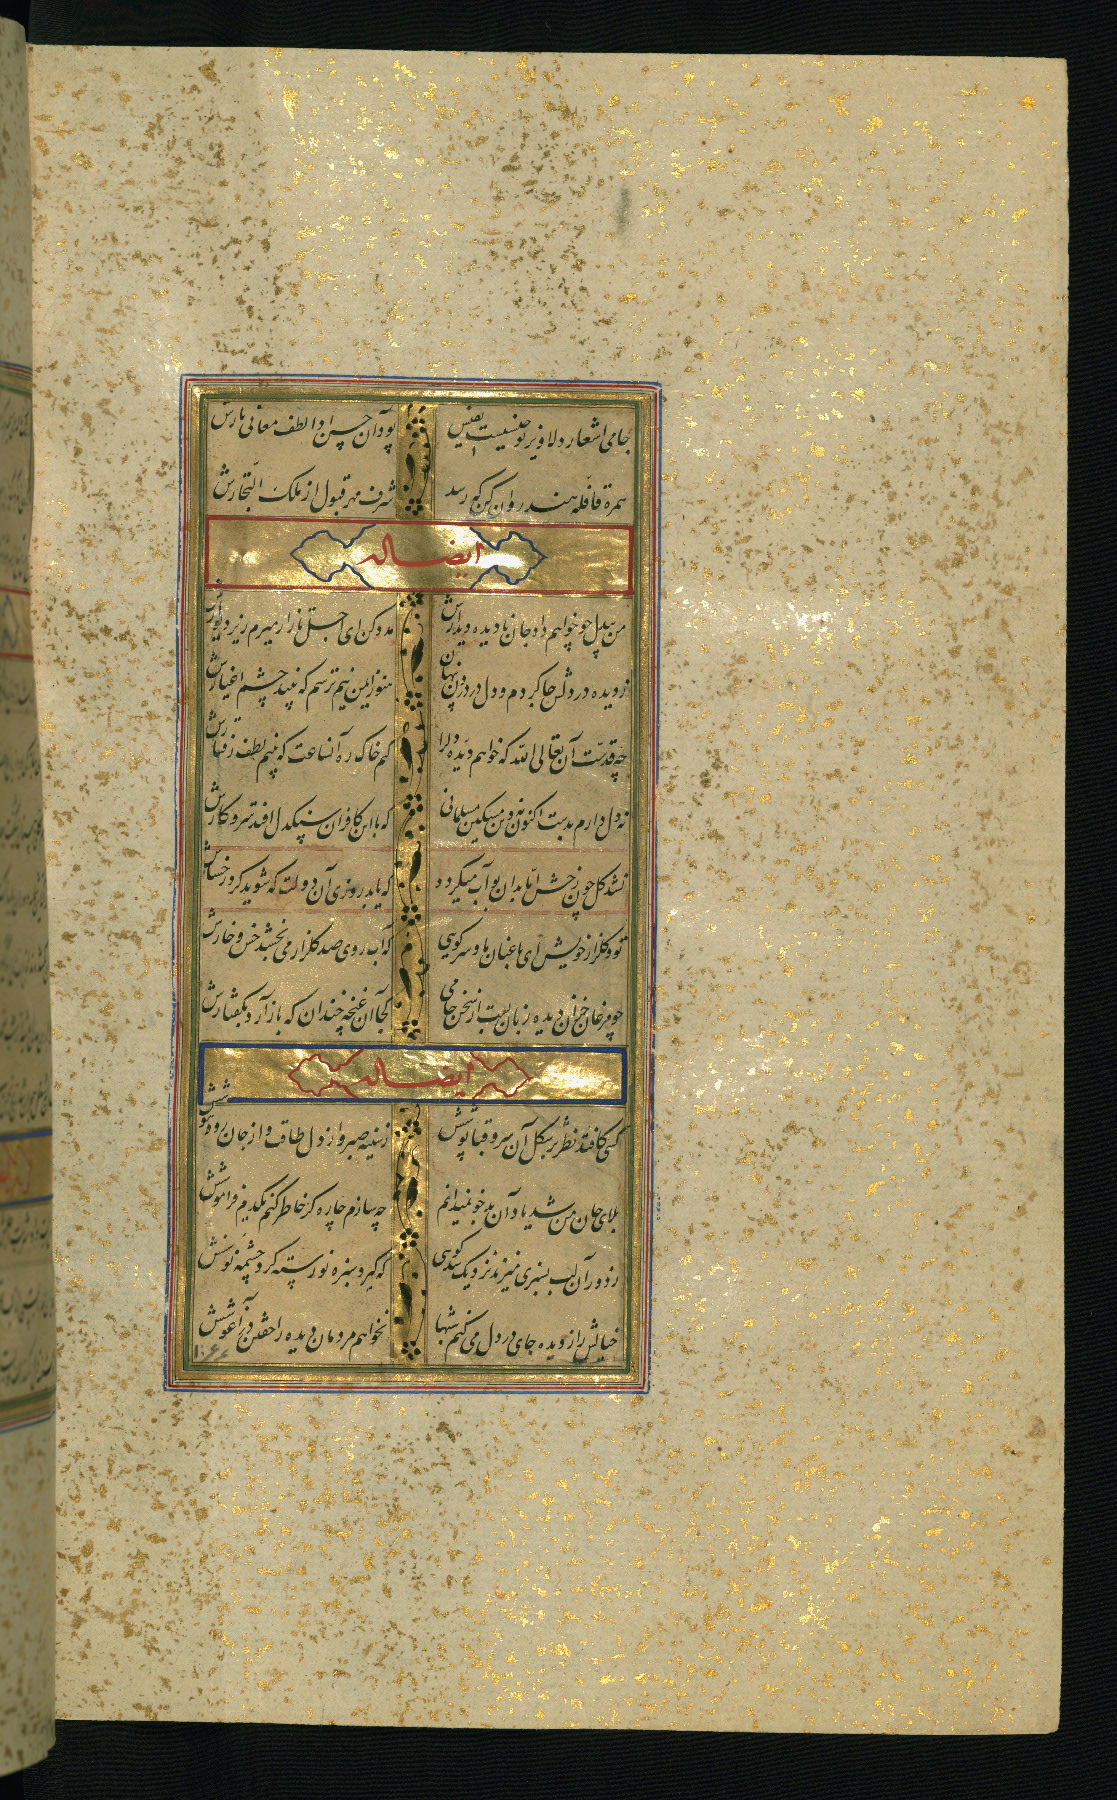 جامی اشعار دلاویز تو جنسیست نفیس
بود آن حسن ادا لطف معانی تارش
همره قافله هند روان کن که رسد
شرف مهر قبول از ملک التجارش
ایضا له
من بیدل چو خواهم داد جان نادیده دیدارش
مدد کن ای اجل تا زار میرم زیر دیوارش
ز دیده در دلش جا کردم و دل در درون پنهان
هنوز ایمن نیم ترسم که بیند چشم اغیارش
چه قدست آن تعالی الله که خواهم دیده و دل را
کنم خاک ره آن ساعت که بینم لطف رفتارش
نه دل دارم بدست اکنون نه دین مسکین مسلمانی
که با این کافران سنگدل افتد سر و کارش
نشد گل چون رخش اما بدان بو آب میگردد
که یابد روزی آن دولت که شوید گرد رخسارش
تو و گلزار خویش ای باغبان ما و سر کویی
که آب روی صد گلزار می بخشد خس و خارش
چو مرغان خزان دیده زبان بست از سخن جامی
کجا آن غنچه خندان که باز آرد بگفتارش
ایضا له
کسی کافتد نظر بر شکل آن سرو قباپوشش
ز سینه صبر و از دل طاقت و از جان رود هوشش
بلای جان من شد یاد آن بدخو نمیدانم
چه سازم چاره کز خاطر کنم یکدم فراموشش
ز دور آن لب بسبزی میزند نزدیک شد گویی
که گیرد سبزه نورسته گرد چشمه نوشش
خیالش را ز دیده جای در دل می کنم شبها
نخواهم مردمان دیده را خفتن در آغوشش